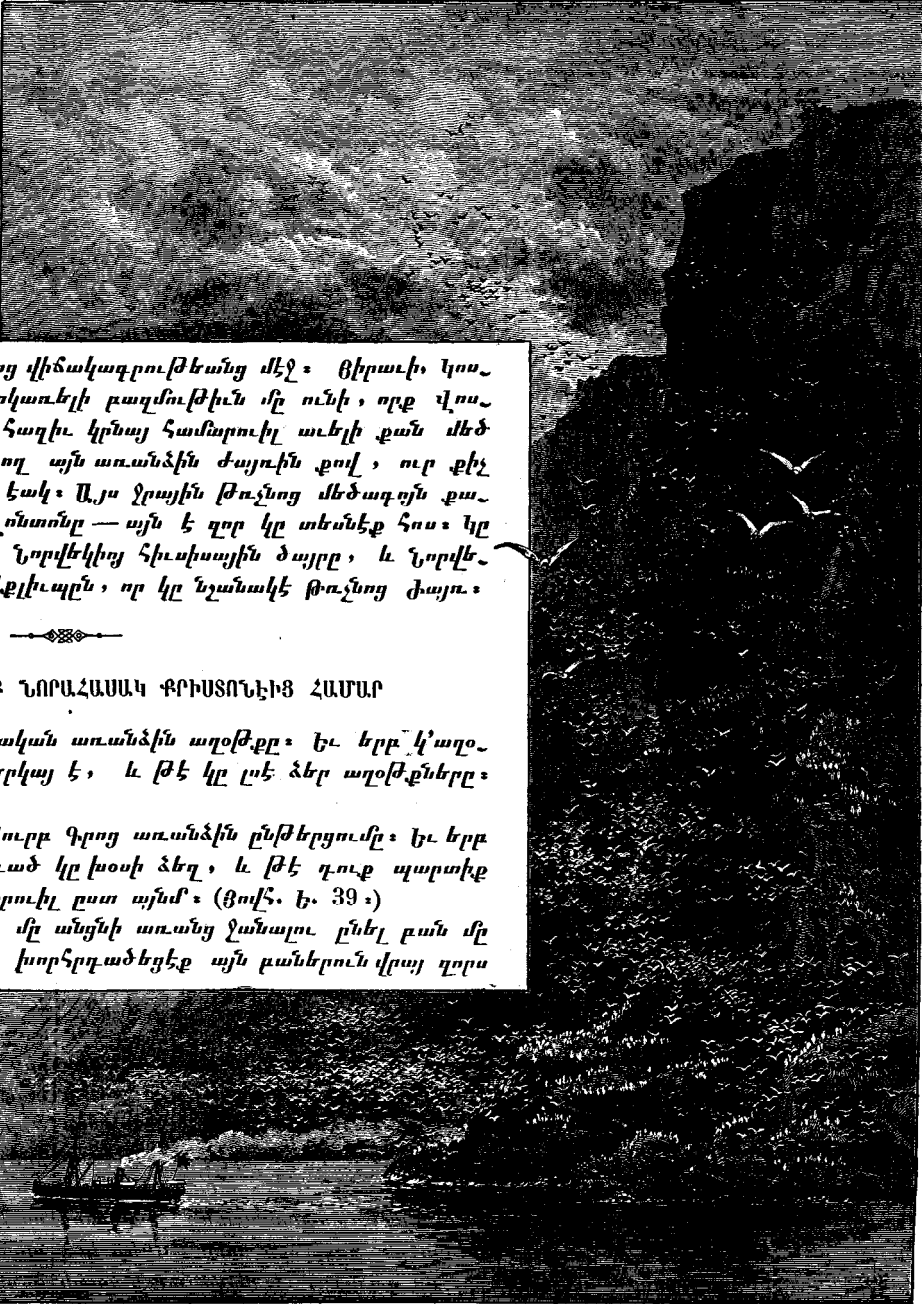 վիճակագրութեանց մէջ։ Յիրաւի, կոս-
բազմութիւն մը ունի, որք վոս-
Հազիւ կրնայ համարուիլ աւելի քան մեծ
այն առանձին ժայռին քով, ուր քիչ
էակ։ Այս ջրային թռչնոց մեծագոյն քա-
— այն է զոր կը տեսնէք հոս։ Կը
Նորվեկիոյ հիւսիսային ծայրը, և Նորվե-
որ կը նշանակէ Թռչնոց Ժայռ։
ՆՈՐԱՀԱՍԱԿ ՔՐԻՍՏՈՆԷԻՑ ՀԱՄԱՐ
առանձին աղօթքը։ Եւ երբ կ՚աղօ-
է, և թէ կը լսէ ձեր աղօթքները։
Գրոց առանձին ընթերցումը։ Եւ երբ
կը խօսի ձեզ, և թէ դուք պարտիք
ըստ այնմ։ (Յովհ. Ե. 39։)
մը անցնի առանց ջանալու ընել բան մը
խորհրդածեցէք այն բաներուն վրայ զորս